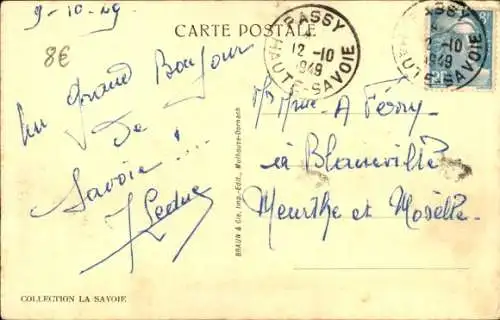 9-10-49
8€
CARTE POSTALE
PASSY
12-10
1949
HAUTE-SAVOIE
PASSY
12-10
1949
HAUTE-SAVOIE
Un grand Bonjour
de
Savoie !..
Leduc
BRAUN & Cie, Imp.-Edit., Mulhouse-Dornach
Mr Mme A Féry
à Blainville
Meurthe et Moselle
COLLECTION LA SAVOIE